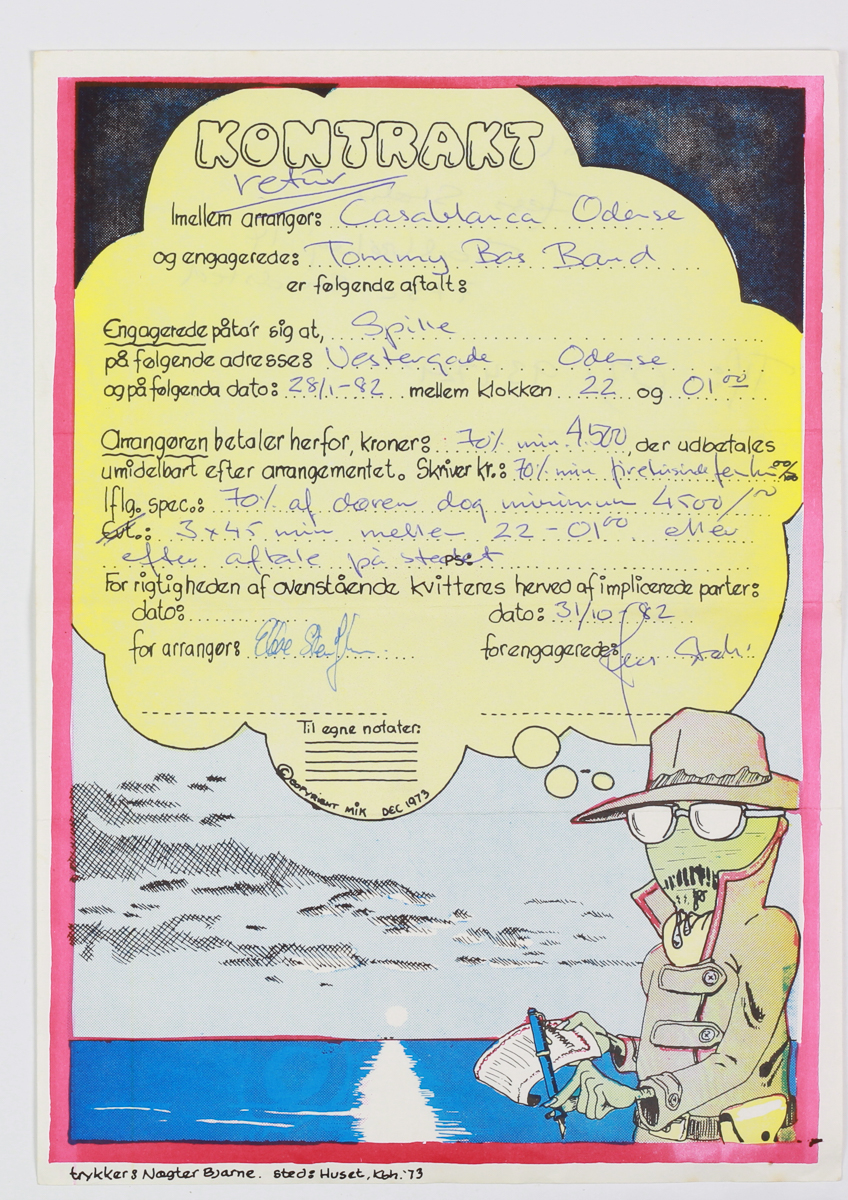 KONTRAKT
retur
Imellem arrangør: Casablanca Odense
og engagerede: Tommy Bas Band
er følgende aftalt:
Engagerede påta'r sig at, Spille
på følgende adresse: Vestergade Odense
og på følgenda dato: 28/1-82 mellem klokken 22 og 01 00
Arrangøren betaler herfor, kroner: 70% min 4.500, der udbetales
umidelbart efter arrangementet. Skriver kr.: 70% min firetusindefemhu 00/100
Iflg. spec.: 70% af døren dog minimum 4500/00
Evt.: 3 x 45 min mellem 22 - 01 00 eller
efter aftale på stedet
PS:
For rigtigheden af ovenstående kvitteres herved af implicerede parter:
dato: dato: 31/10-82
for arrangør: for engagerede:
Til egne notater:
© COPYRIGHT MIK DEC 1973
trykker: Nægter Bjarne. sted: Huset, Kbh. '73